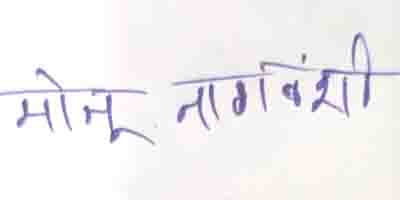 मोनू नागवंशी